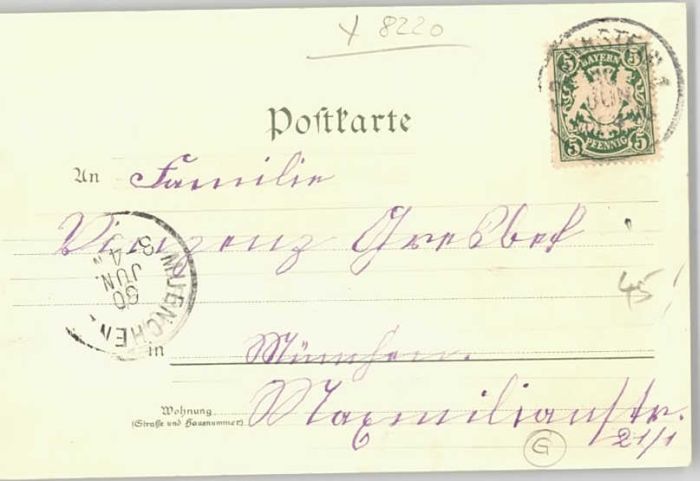 x 8220
5 BAYERN 5
5 PFENNIG 5
JUN
Postkarte
An Familie
Vinzenz Gresbek
MUENCHEN
30
JUN.
4
8
45
in München.
Wohnung
(Straße und Hausnummer)
Maximilianstr.
21/1
G